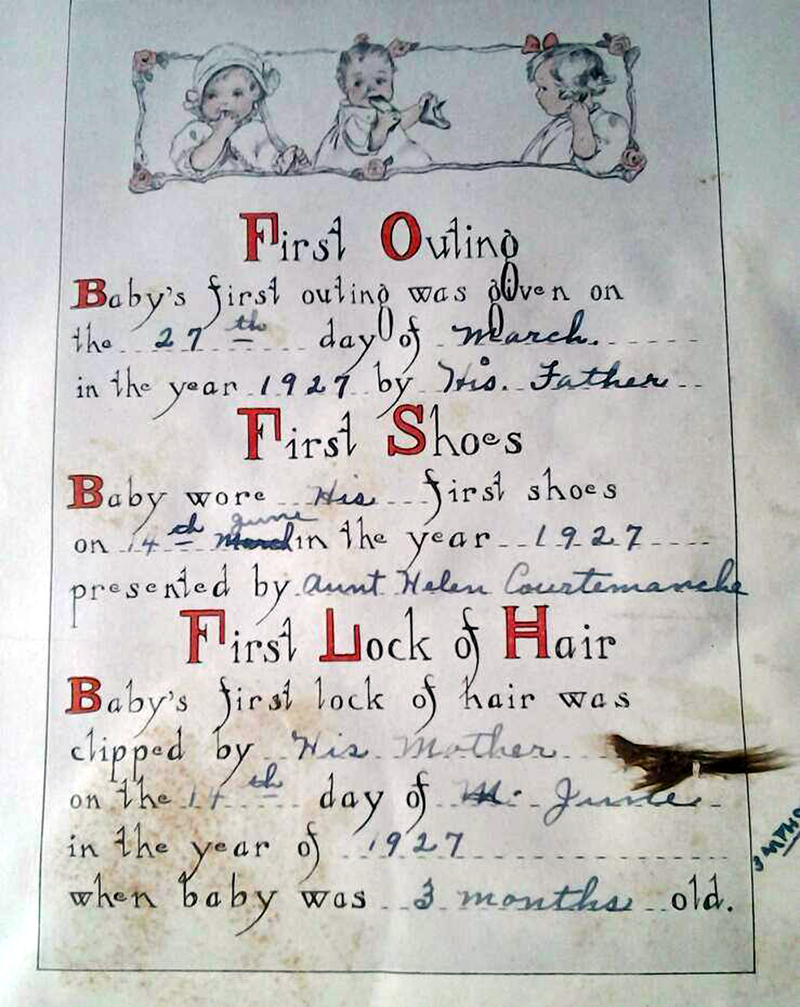 First Outing
Baby's first outing was given on
the 27th day of March.
in the year 1927 by His Father
First Shoes
Baby wore His first shoes
on 14th June in the year 1927
presented by Aunt Helen Courtemanche
First Lock of Hair
Baby's first lock of hair was
clipped by His Mother
on the 14th day of June
in the year of 1927
when baby was 3 months old.